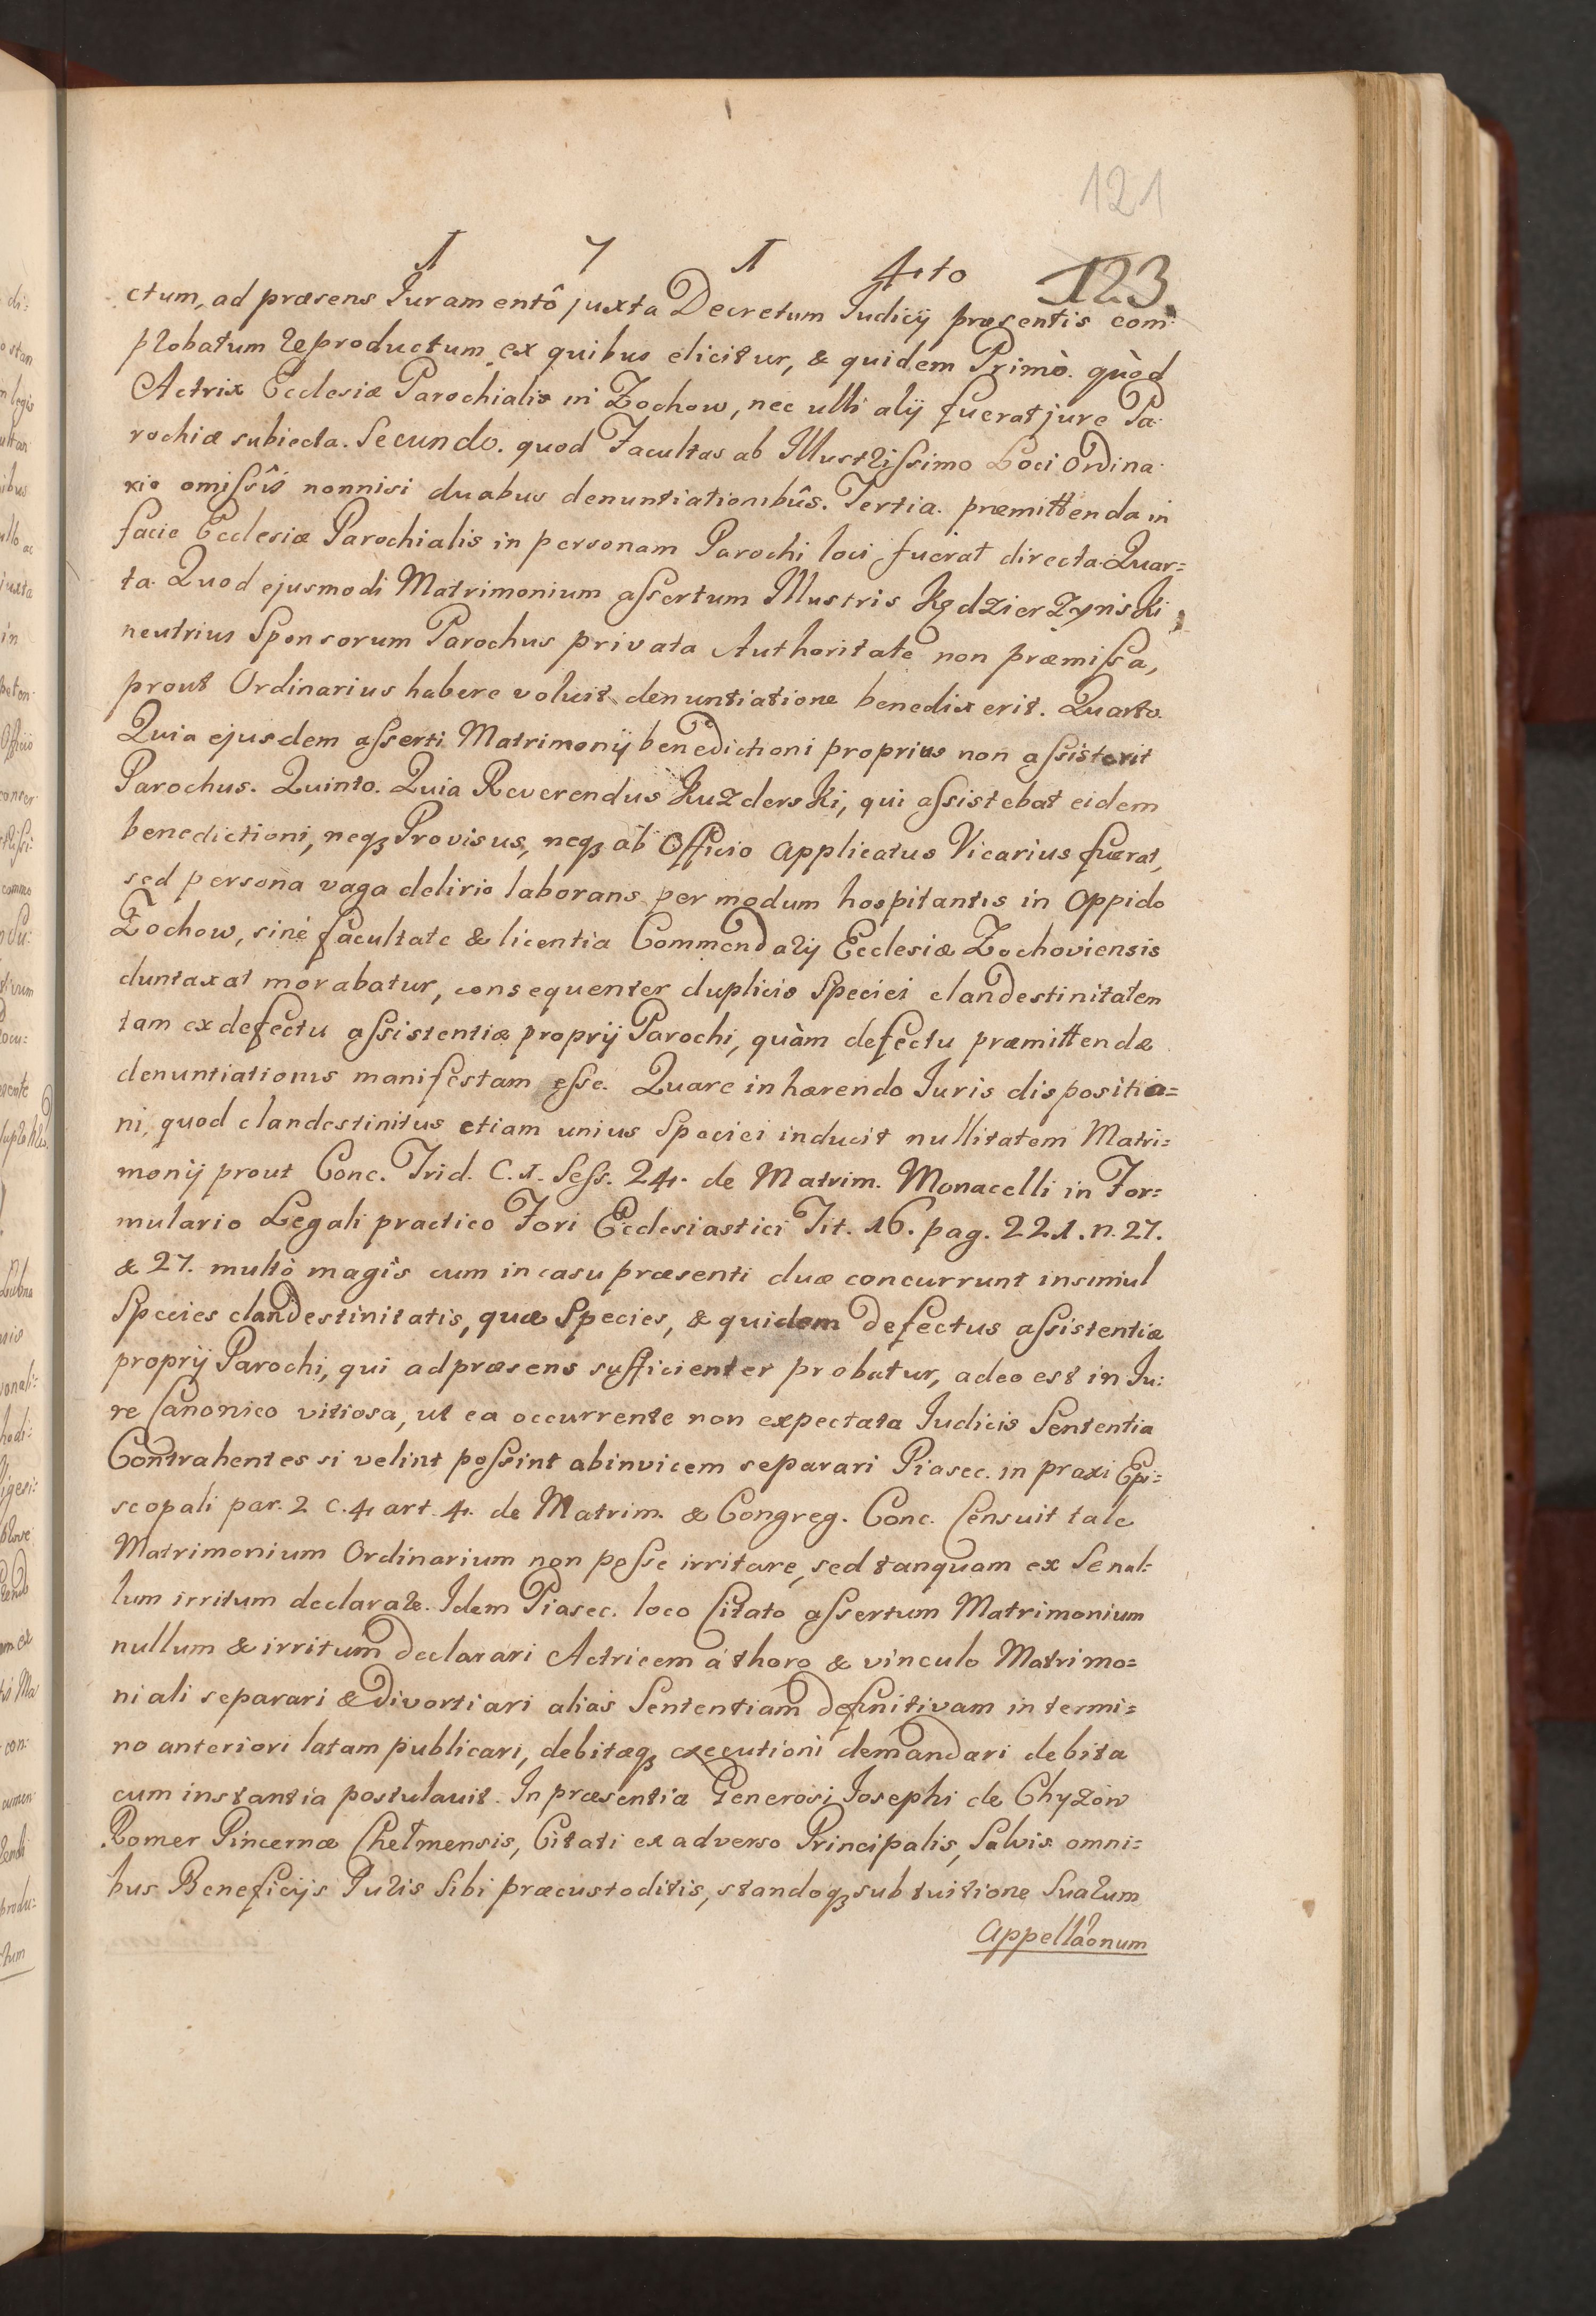 121
1 7 1 4to 123.
ctum, ad præsens Juramentô juxta Decretum Judicij præsentis com:
probatum reproductum, ex quibus elicitur, & quidem Primò. quòd
Actrix Ecclesiæ Parochialis in Zochow, nec ulli alij fuerat jure Pa:
rochiæ subiecta. Secundo. quod Facultas ab Illustrissimo Loci Ordina:
rio omissîs nonnisi duabus denuntiationibûs. Tertia. præmittenda in
facie Ecclesiæ Parochialis in personam Parochi loci fuerat directa. Quar=
ta. Quod ejusmodi Matrimonium assertum Illustris Kędzierzynski,
neutrius Sponsorum Parochus privata Authoritate non præmissa,
prout Ordinarius habere voluit denuntiatione benedixerit. Quarto.
Quia ejusdem asserti Matrimonij benedictioni proprius non assisterit
Parochus. Quinto. Quia Reverendus Kuzderski, qui assistebat eidem
benedictioni, neq3 Provisus, neq3 ab Officio applicatus Vicarius fuerat,
sed persona vaga delirio laborans per modum hospitantis in Oppido
Zochow, sinè facultate & licentia Commendarij Ecclesiæ Zochoviensis
duntaxat morabatur, consequenter duplicis Speciei clandestinitatem
tam ex defectu assistentiæ proprij Parochi, quàm defectu præmittendæ
denuntiationis manifestam esse. Quare inhærendo Juris dispositio=
ni, quod clandestinitus etiam unius Speciei inducit nullitatem Matri=
monij prout Conc. Trid. C. 1. Sess. 24. de Matrim. Monacelli in For=
mulario Legali practico Fori Ecclesiastici Tit. 16. pag. 221. n. 27.
& 27. multò magis cum in casu præsenti duæ concurrunt insimul
Species clandestinitatis, quæ Species, & quidem defectus assistentiæ
proprij Parochi, qui ad præsens sufficienter probatur, adeo est in Ju:
re Canonico vitiosa, ut ea occurrente non expectata Judicis Sententia
Contrahentes si velint possint abinvicem separari Piasec. in praxi Epi=
scopali par. 2 C. 4 art. 4. de Matrim. & Congreg. Conc. Censuit tale
Matrimonium Ordinarium non posse irritare, sed tanquam ex Se nul:
lum irritum declarare. Idem Piasec. loco Citato assertum Matrimonium
nullum & irritum declarari Actricem á thoro & vinculo Matrimo=
niali separari & divortiari alias Sententiam definitivam in termi=
no anteriori latam publicari, debitæq3 executioni demandari debita
cum instantia postulavit. In præsentia Generosi Josephi de Chyzow
Romer Pincernæ Chełmensis, Citati ex adverso Principalis, Salvis omni=
bus Beneficijs Juris Sibi præcustoditis, standoq3 sub tuitione Suarum
Appellãonum